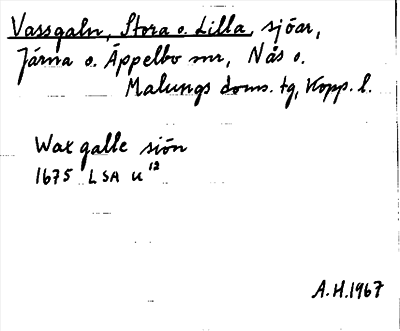 Vassgaln, Stora o. Lilla, sjöar,
Järna o. Äppelbo snr, Nås o.
Malungs doms. tg, Kopp. l.
Wax galle siön
1675 LSA U 12
A.H. 1967